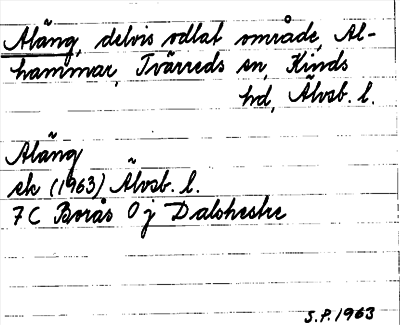 Aläng, delvis odlat område, Al-
hammar, Tvärreds sn, Kinds
hd, Älvsb. l.
Aläng
ek (1963) Älvsb. l.
7C Borås 0j Dalshestra
S.P. 1963